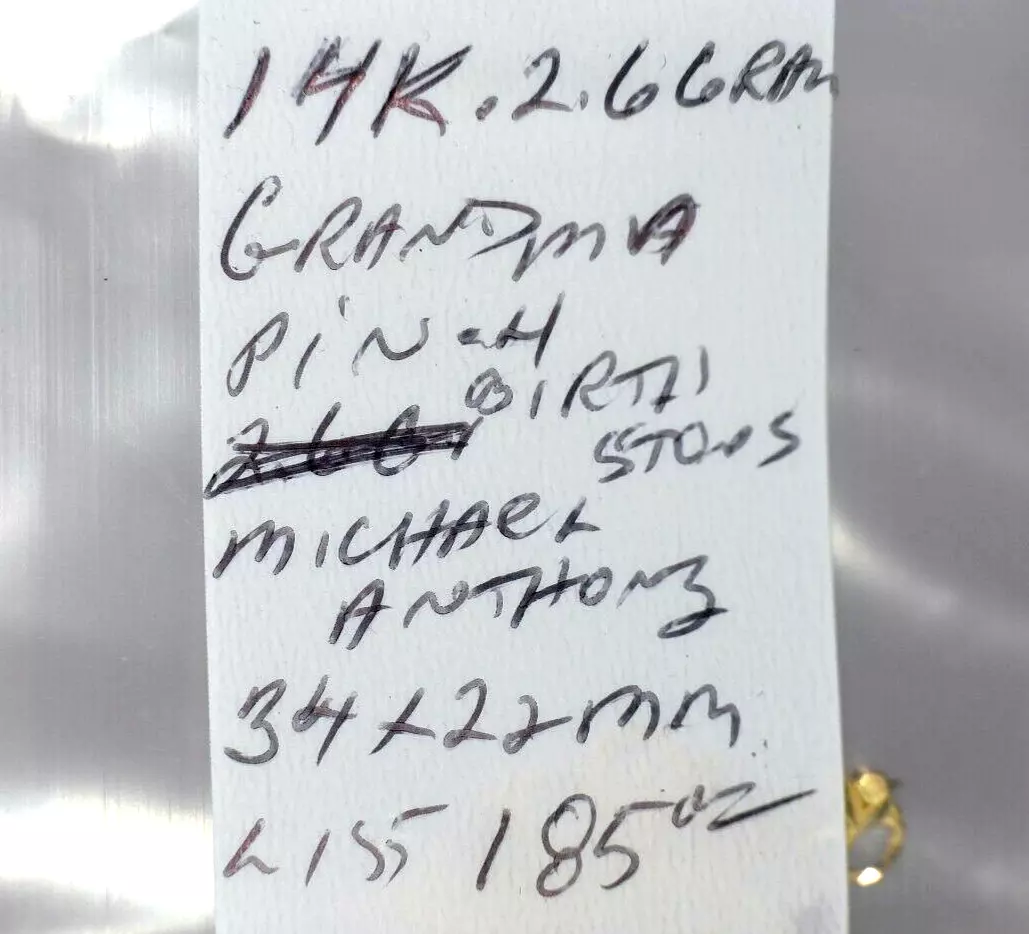 14K. 2.6 GRAM
GRANDMA
PIN - 4
BIRTH
STONS
MICHAEL
ANTHONY
34 X 22 mm
185